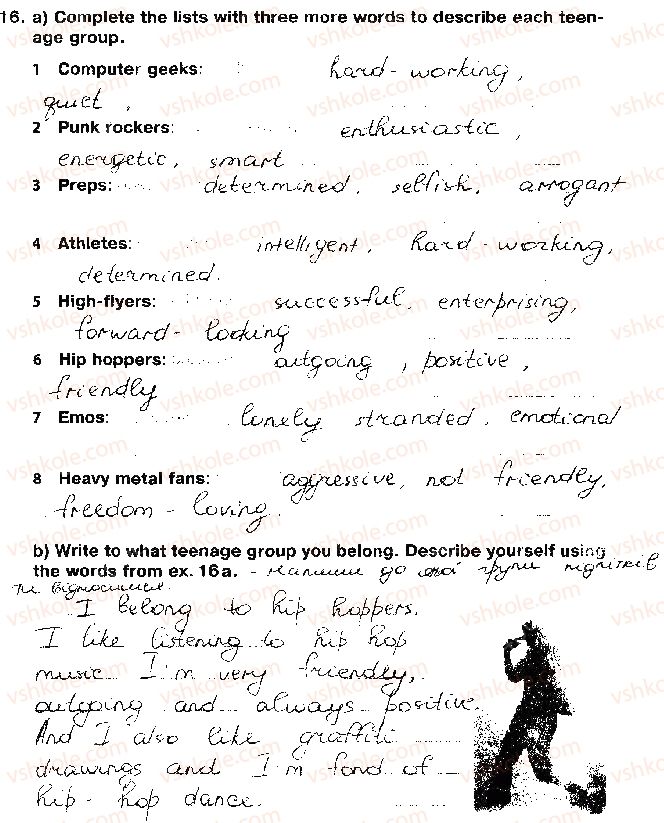 16. a) Complete the lists with three more words to describe each teen-
age group.
1 Computer geeks: hard-working,
quiet,
2 Punk rockers: enthusiastic,
energetic, smart
3 Preps: determined, selfish, arrogant
4 Athletes: intelligent, hard-working,
determined.
5 High-flyers: successful, enterprising,
forward-looking
6 Hip hoppers: outgoing, positive,
friendly
7 Emos: lonely stranded, emotional
8 Heavy metal fans: aggressive, not friendly,
freedom-loving.
b) Write to what teenage group you belong. Describe yourself using
the words from ex. 16a. - напиши до якої групи підлітків
ти відносишся.
I belong to hip hoppers.
I like listening to hip hop
music. I'm very friendly,
outgoing and always positive.
And I also like graffiti
drawings and I'm fond of
hip-hop dance.
vshkole.com